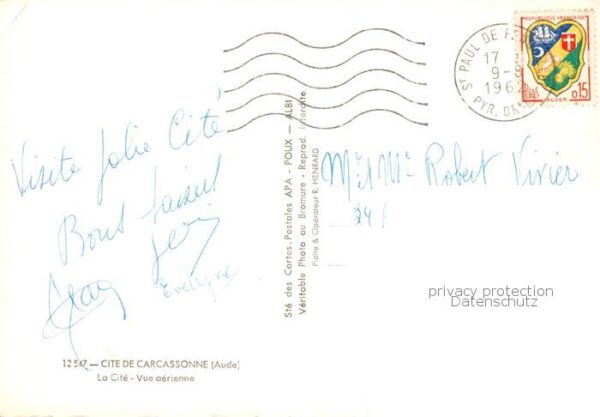 Visite Jolie Cité
Bons baisers
Evelyne
12 547 — CITE DE CARCASSONNE (Aude)
La Cité - Vue aérienne
Sté des Cartes. Postales APA - POUX — ALBI
Véritable Photo au Bromure - Reprod. Interdite
Pilote & Opérateur R. HENRARD
ST PAUL DE
17
9-8
1962
PYR. OR.
REPUBLIQUE FRANÇAISE
0,15
ALGER
Mr & Me Robert Vivier
privacy protection
Datenschutz